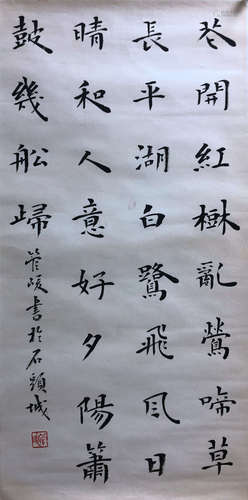 花開紅樹亂鶯啼草
長平湖白鷺飛風日
晴和人意好夕陽簫
鼓幾船歸
管峻書於石頭城